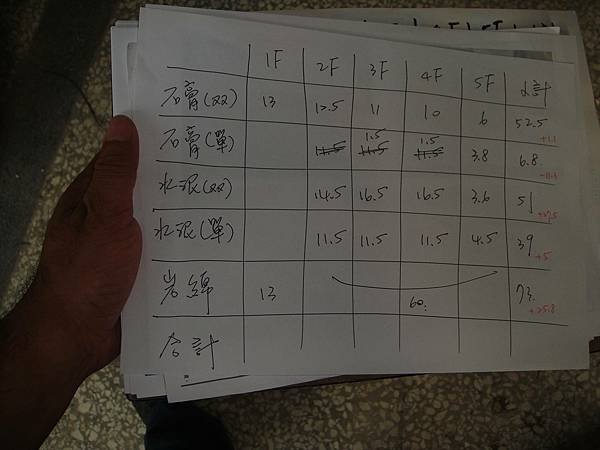 1F 2F 3F 4F 5F 小計
石膏(双) 13 12.5 11 10 6 52.5
+1.1
石膏(單) 11.5 1.5 11.5 1.5 11.5 3.8 6.8
-11.3
水泥(双) 14.5 16.5 16.5 3.6 51
水泥(單) 11.5 11.5 11.5 4.5 39
+5
岩綿 13 60. 73.
+25.8
合計